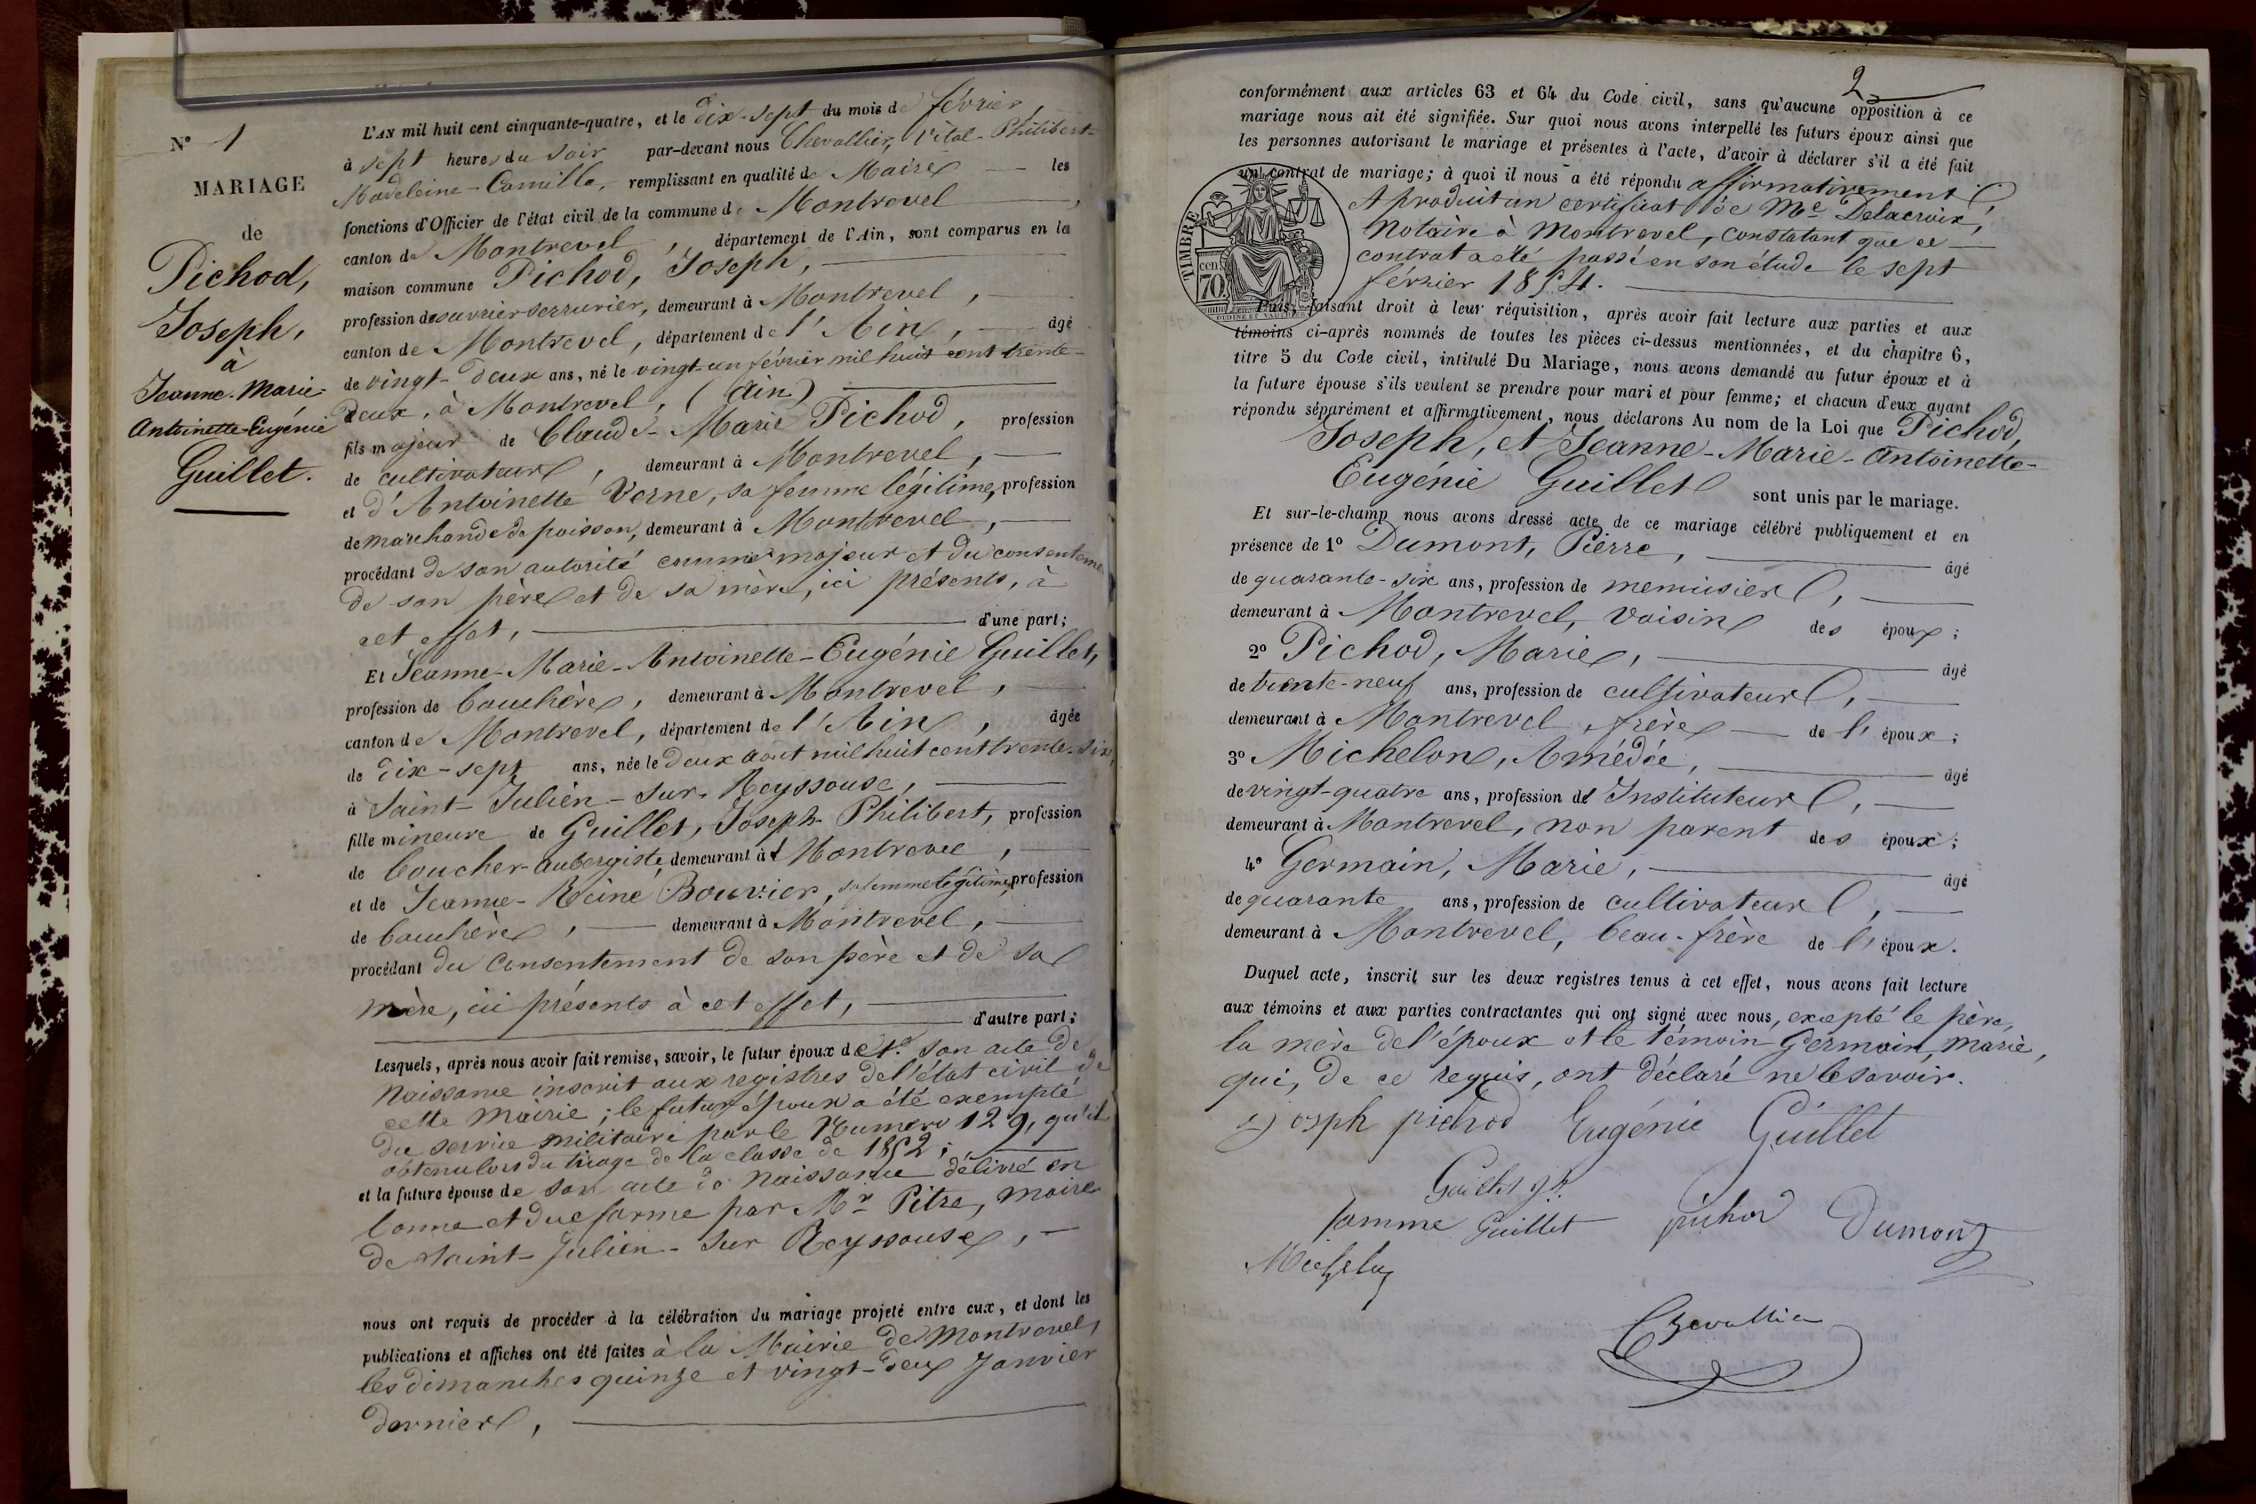 N° 1
MARIAGE
de
Pichod,
Joseph,
à
Jeanne-Marie-
Antoinette-Eugénie
Guillet.
L'AN mil huit cent cinquante-quatre, et le dix-sept du mois de février,
à sept heures du soir par-devant nous Chevallier, Vital-Philibert-
Madeleine-Camille, remplissant en qualité de Maire les
fonctions d'Officier de l'état civil de la commune de Montrevel,
canton de Montrevel, département de l'Ain, sont comparus en la
maison commune Pichod, Joseph,
profession de ouvrier serrurier, demeurant à Montrevel,
canton de Montrevel, département de l'Ain, âgé
de vingt-deux ans, né le vingt-un février mil huit cent trente-
deux, à Montrevel, (Ain)
fils majeur de Claude-Marie Pichod, profession
de cultivateur, demeurant à Montrevel,
et d'Antoinette Verne, sa femme légitime, profession
de marchande de poisson, demeurant à Montrevel,
procédant de son autorité comme majeur et du consenteme
de son père et de sa mère, ici présents, à
cet effet, d'une part;
Et Jeanne-Marie-Antoinette-Eugénie Guillet,
profession de bouchère, demeurant à Montrevel,
canton de Montrevel, département de l'Ain, âgée
de dix-sept ans, née le deux août mil huit cent trente-six,
à Saint-Julien-sur-Reyssouse,
fille mineure de Guillet, Joseph-Philibert, profession
de boucher-aubergiste, demeurant à Montrevel,
et de Jeanne-Reine Bouvier, sa femme légitime, profession
de bouchère, demeurant à Montrevel,
procédant du consentement de son père et de sa
mère, ici présents à cet effet,
d'autre part;
Lesquels, après nous avoir fait remise, savoir, le futur époux de 1.° son acte de
naissance inscrit aux registres de l'état civil de
cette Mairie; le futur époux a été exempté
du service militaire par le Numéro 129, qu'il
obtenu lors du tirage de la classe de 1852;
et la future épouse de son acte de naissance délivré en
bonne et due forme par Mr Pitre, maire
de Saint-Julien-sur Reyssouse,
nous ont requis de procéder à la célébration du mariage projeté entre eux, et dont les
publications et affiches ont été faites à la Mairie de Montrevel,
les dimanches quinze et vingt-deux Janvier
dernier,
2
conformément aux articles 63 et 64 du Code civil, sans qu'aucune opposition à ce
mariage nous ait été signifiée. Sur quoi nous avons interpellé les futurs époux ainsi que
les personnes autorisant le mariage et présentes à l'acte, d'avoir à déclarer s'il a été fait
un contrat de mariage; à quoi il nous a été répondu affirmativement
et produit un certificat de Me Delacroix,
Notaire à Montrevel, constatant que ce
contrat a été passé en son étude le sept
février 1854.
TIMBRE
cen.
70
Puis, faisant droit à leur réquisition, après avoir fait lecture aux parties et aux
témoins ci-après nommés de toutes les pièces ci-dessus mentionnées, et du chapitre 6,
titre 5 du Code civil, intitulé Du Mariage, nous avons demandé au futur époux et à
la future épouse s'ils veulent se prendre pour mari et pour femme; et chacun d'eux ayant
répondu séparément et affirmativement, nous déclarons Au nom de la Loi que Pichod,
Joseph, et Jeanne-Marie-Antoinette-
Eugénie Guillet sont unis par le mariage.
Et sur-le-champ nous avons dressé acte de ce mariage célébré publiquement et en
présence de 1° Dumont, Pierre, âgé
de quarante-six ans, profession de menuisier,
demeurant à Montrevel, voisin des époux;
2° Pichod, Marie, âgé
de trente-neuf ans, profession de cultivateur,
demeurant à Montrevel, frère de l'époux;
3° Michelon, Amédée, âgé
de vingt-quatre ans, profession de Instituteur,
demeurant à Montrevel, non parent des époux;
4° Germain, Marie, âgé
de quarante ans, profession de cultivateur,
demeurant à Montrevel, beau-frère de l'époux.
Duquel acte, inscrit sur les deux registres tenus à cet effet, nous avons fait lecture
aux témoins et aux parties contractantes qui ont signé avec nous, excepté le père,
la mère de l'époux et le témoin Germain, Marie,
qui, de ce requis, ont déclaré ne le savoir.
Josph pichod Eugénie Guillet
Guillet jh
famme Guillet pichod Dumont
Michelon
Chevallier